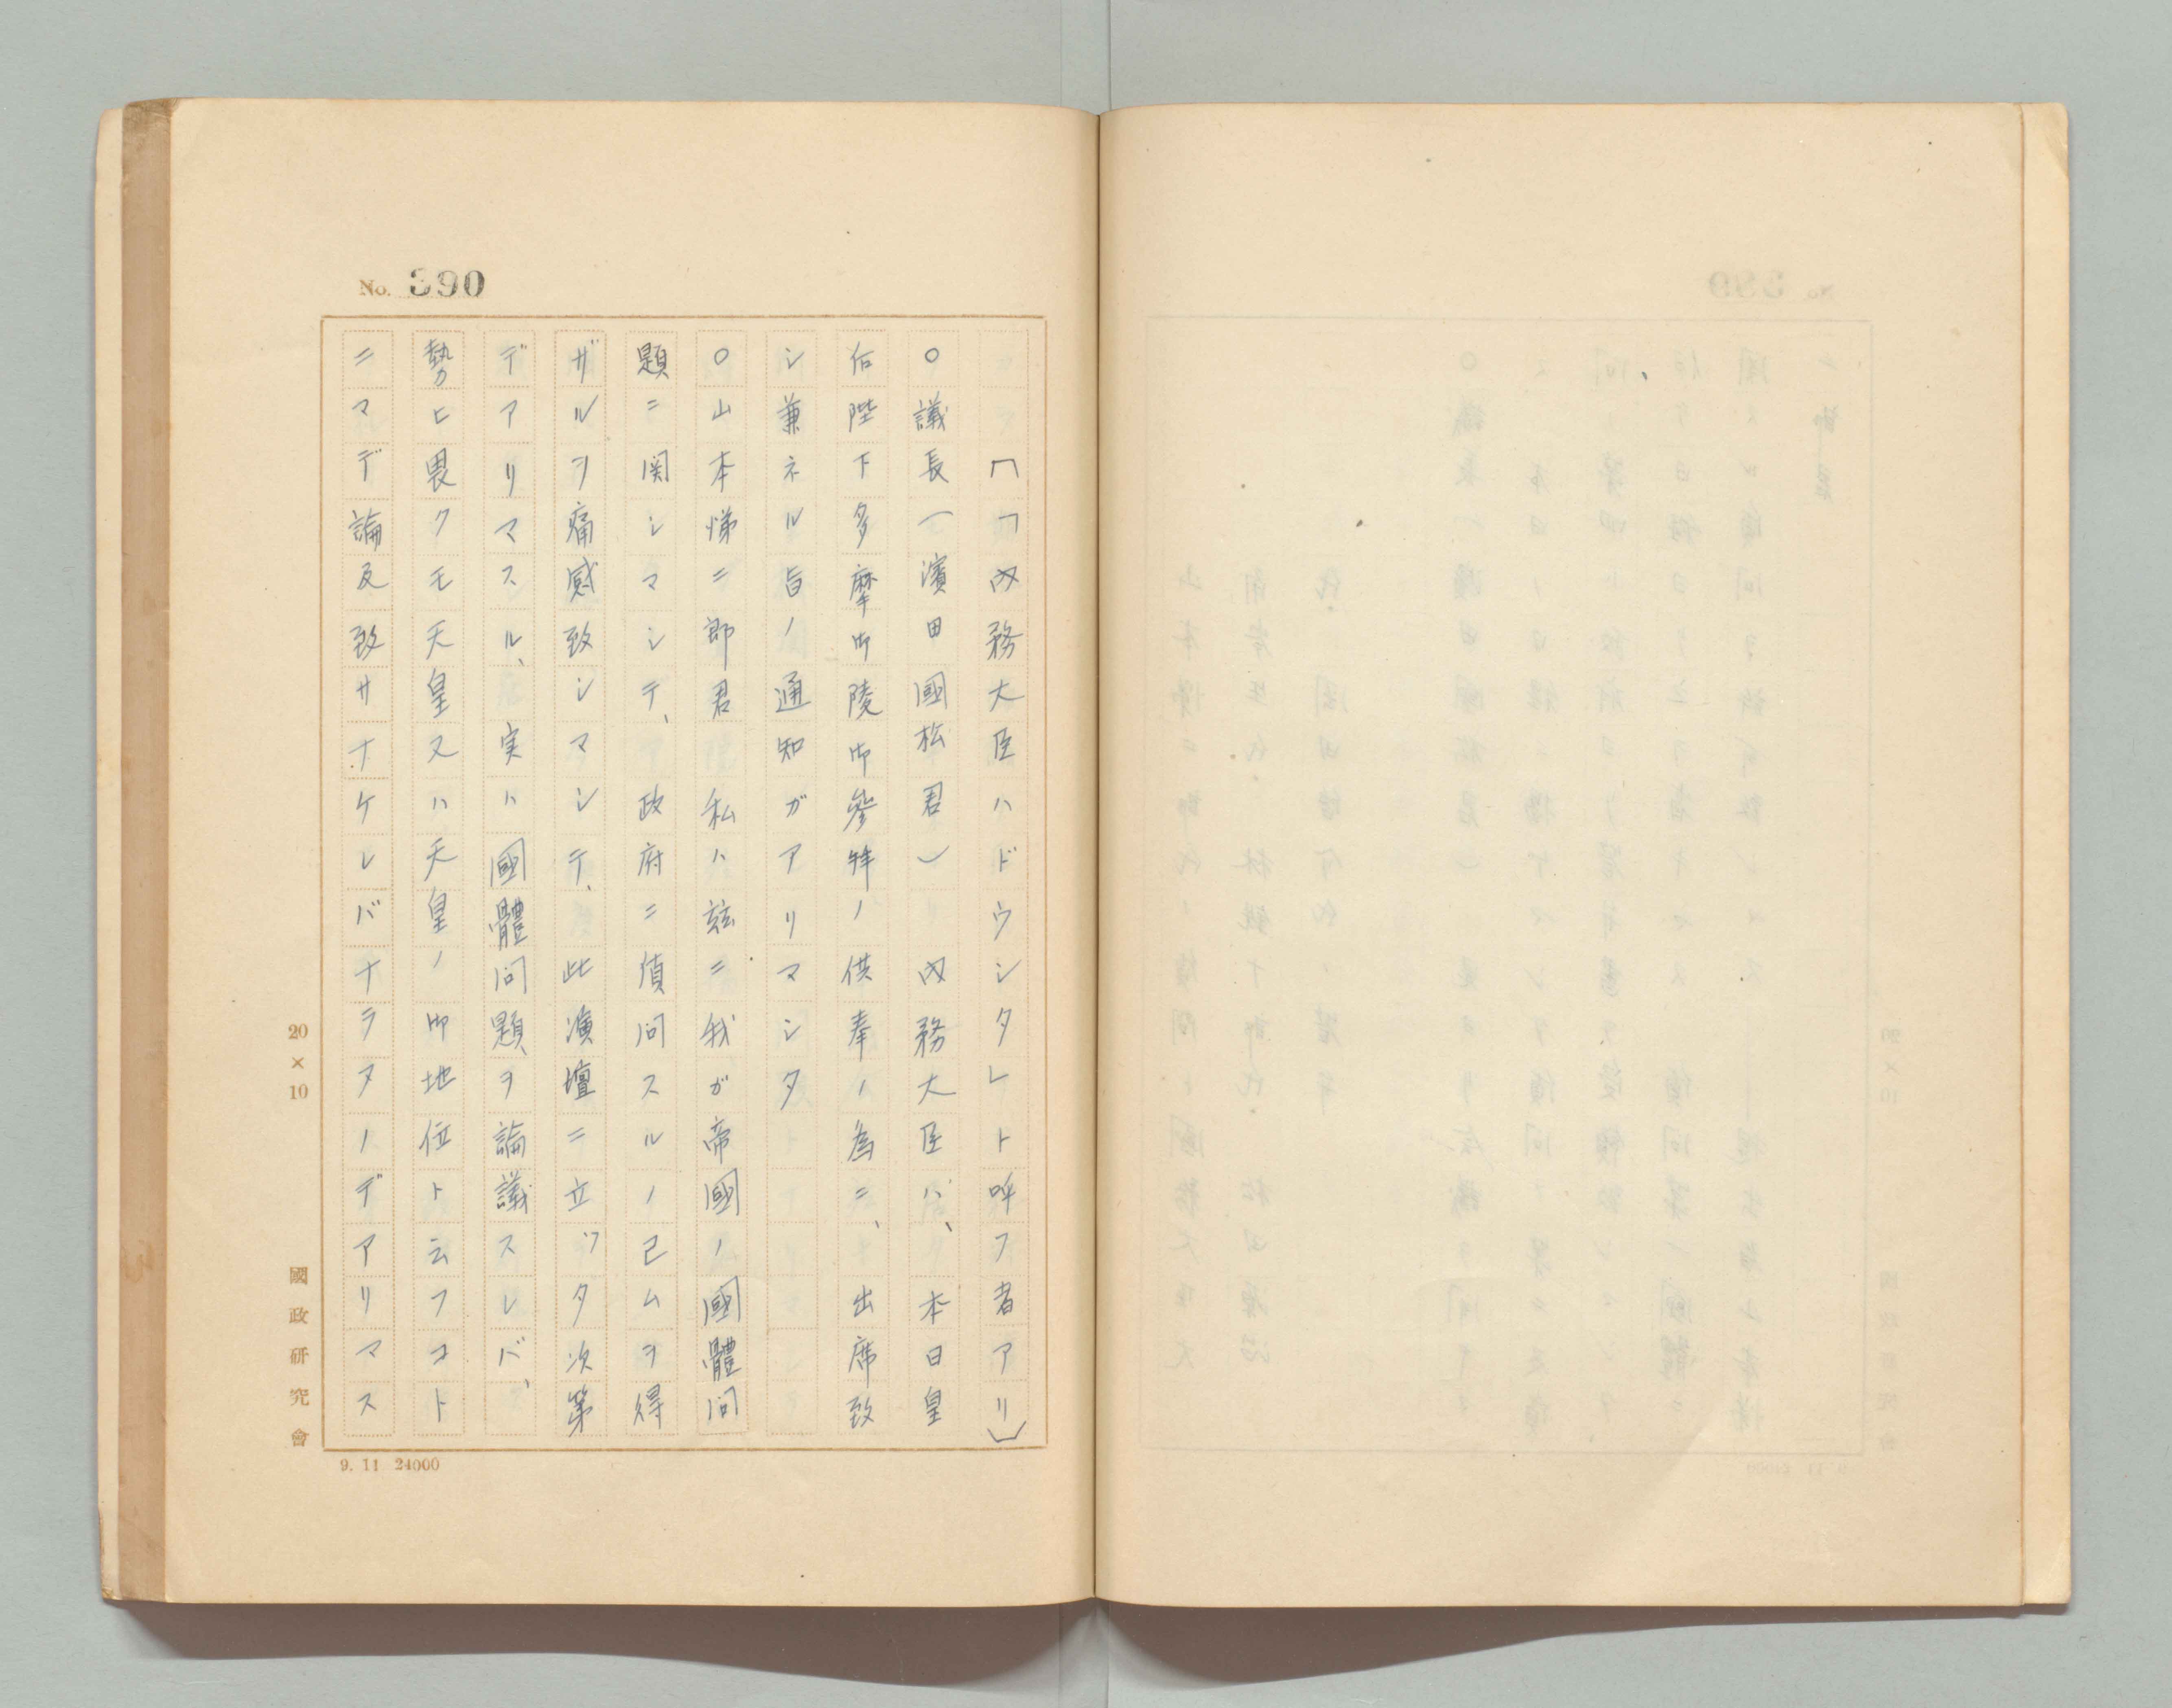 No. 390
〔「内務大臣ハドウシタレト呼フ者アリ〕
○議長(濱田國松君) 内務大臣ハ、本日皇
后陛下多摩御陵御參拝ノ供奉ノ為ニ、出席致
シ兼ネル旨ノ通知ガアリマシタ
○山本悌二郎君 私ハ玆ニ我ガ帝國ノ國體問
題ニ関シマシテ、政府ニ質問スルノ已ムヲ得
ザルヲ痛感致シマシテ、此演壇ニ立ツタ次第
デアリマスル、実ハ國體問題ヲ論議スレバ、
勢ヒ畏クモ天皇又ハ天皇ノ御地位ト云フコト
ニマデ論及致サナケレバナラヌノデアリマス
20×10
國政研究會
9. 11 24000